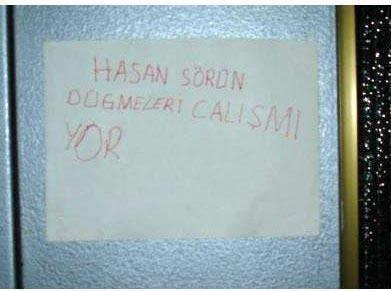 HASAN SÖRÜN
DÜGMELERİ CALIŞMI
YOR